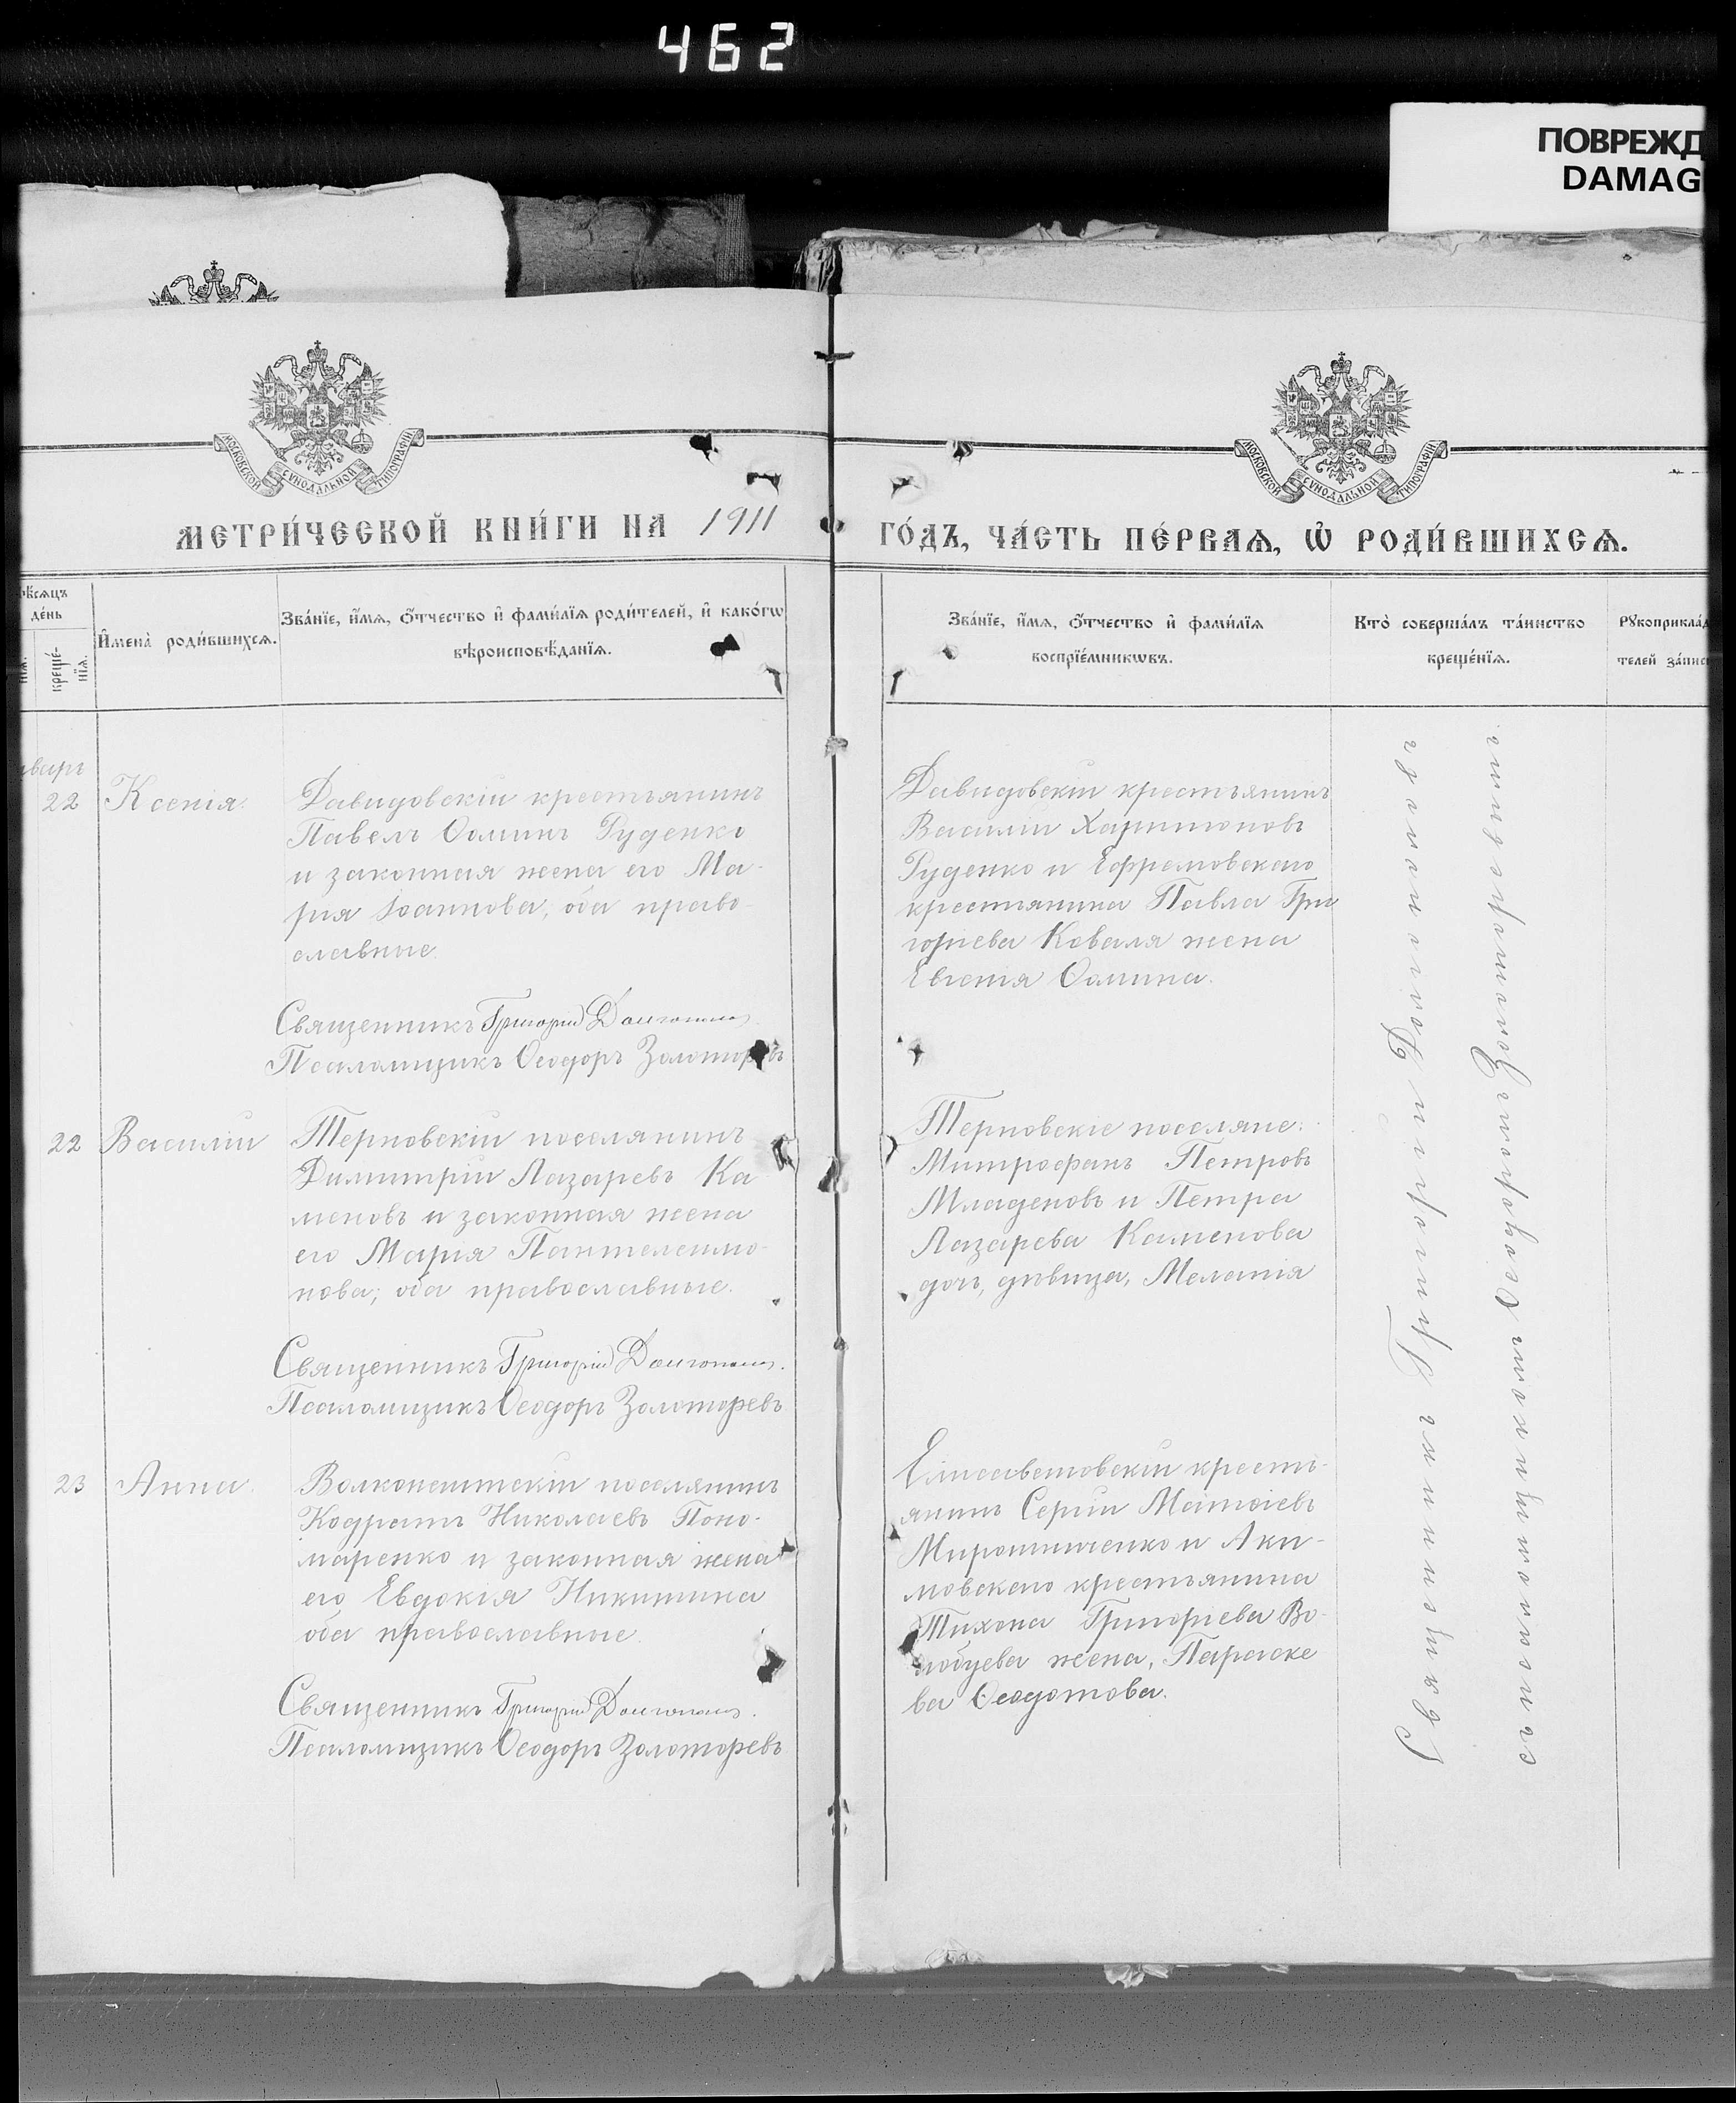 462
ПОВРЕЖД
DAMAG
МОСКОВСКОЙ СѴНОДАЛЬНОЙ ТИПОГРАФІИ
МОСКОВСКОЙ СѴНОДАЛЬНОЙ ТИПОГРАФІИ
МЕТРИ́ЧЕСКОЙ КНИ́ГИ НА 1911
ГО́ДЪ, ЧА́СТЬ ПЕ́РВАѦ, Ѡ҆ РОДИ́ВШИХСѦ.
де́нь
креще́-
нїѧ.
И҆мена̀ роди́вшихсѧ.
Зва́нїе, и҆́мѧ, ѻ҆́тчество и҆ фами́лїѧ роди́телей, и҆ како́гѡ
вѣроисповѣ́данїѧ.
Зва́нїе, и҆́мѧ, ѻ҆́тчество и҆ фами́лїѧ
воспрїе́мникѡвъ.
Кто̀ соверша́лъ та́инство
креще́нїѧ.
Рꙋкоприкла́д
телей за́писи
22
Ксенія.
Давидовскій крестьянинъ
Павелъ Ѳоминъ Руденко
и законная жена его Ма-
рія Іоаннова, оба право-
славные.
Священникъ Григорій Долгополовъ
Псаломщикъ Ѳеодоръ Золоторевъ
Давидовскій крестьянинъ
Василій Харитоновъ
Руденко и Ефремовскаго
крестьянина Павла Гри
горіева Коваля жена
Евгенія Ѳомина.
22
Василій
Терновскій поселянинъ
Димитрій Лазаревъ Ка
меновъ и законная жена
его Марія Пантелеимо-
нова; оба православные.
Священникъ Григорій Долгополовъ.
Псаломщикъ Ѳеодоръ Золоторевъ
Терновскіе поселяне:
Митрофанъ Петровъ
Младеновъ и Петра
Лазарева Каменова
доч, дѣвица, Меланія
23
Анна.
Волконештскій поселянинъ
Кодратъ Николаевъ Поно-
маренко и законная жена
его Евдокія Никитина
оба православные.
Священникъ Григорій Долгополовъ.
Псаломщикъ Ѳеодоръ Золоторевъ
Елисаветовскій кресть-
янинъ Сергій Матѳіевъ
Мирошниченко и Аки-
мовскаго крестьянина
Тихона Григоріева Во-
лобуева жена, Параске
ва Ѳеодотова.
Священникъ Григорій Долгополовъ
съ псаломщикомъ Ѳеодоромъ Золоторевымъ